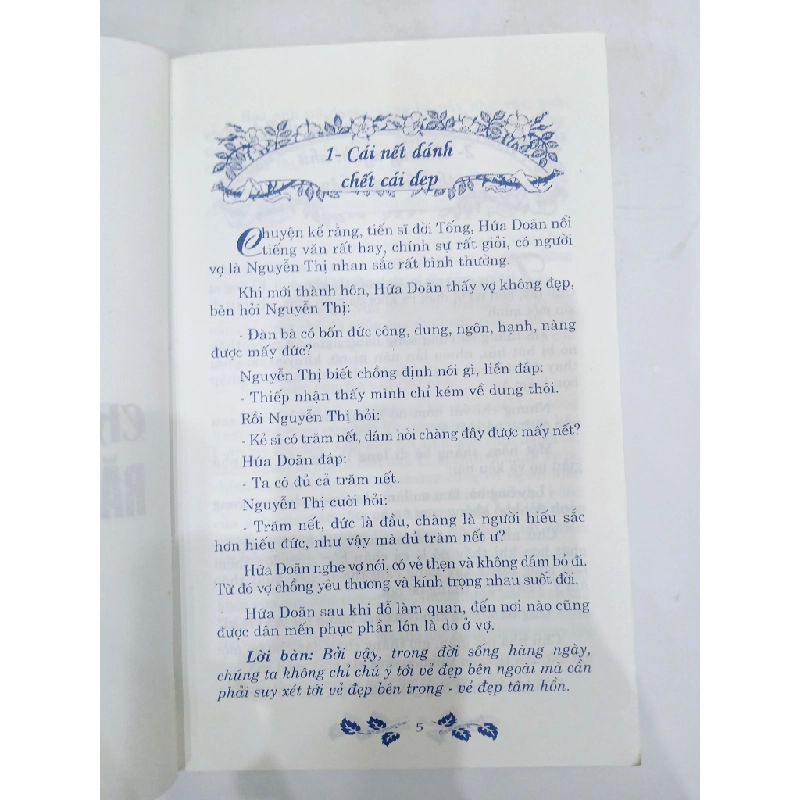 1- Cái nết đánh
chết cái đẹp
Chuyện kể rằng, tiến sĩ đời Tống, Hứa Doãn nổi
tiếng văn rất hay, chính sự rất giỏi, có người
vợ là Nguyễn Thị nhan sắc rất bình thường.
Khi mới thành hôn, Hứa Doãn thấy vợ không đẹp,
bèn hỏi Nguyễn Thị:
- Đàn bà có bốn đức công, dung, ngôn, hạnh, nàng
được mấy đức?
Nguyễn Thị biết chồng định nói gì, liền đáp:
- Thiếp nhận thấy mình chỉ kém về dung thôi.
Rồi Nguyễn Thị hỏi:
- Kẻ sĩ có trăm nết, dám hỏi chàng đây được mấy nết?
Hứa Doãn đáp:
- Ta có đủ cả trăm nết.
Nguyễn Thị cười hỏi:
- Trăm nết, đức là đầu, chàng là người hiếu sắc
hơn hiếu đức, như vậy mà đủ trăm nết ư?
Hứa Doãn nghe vợ nói, có vẻ thẹn và không dám bỏ đi.
Từ đó vợ chồng yêu thương và kính trọng nhau suốt đời.
Hứa Doãn sau khi đỗ làm quan, đến nơi nào cũng
được dân mến phục phần lớn là do ở vợ.
Lời bàn: Bởi vậy, trong đời sống hàng ngày,
chúng ta không chỉ chú ý tới vẻ đẹp bên ngoài mà cần
phải suy xét tới vẻ đẹp bên trong - vẻ đẹp tâm hồn.
5